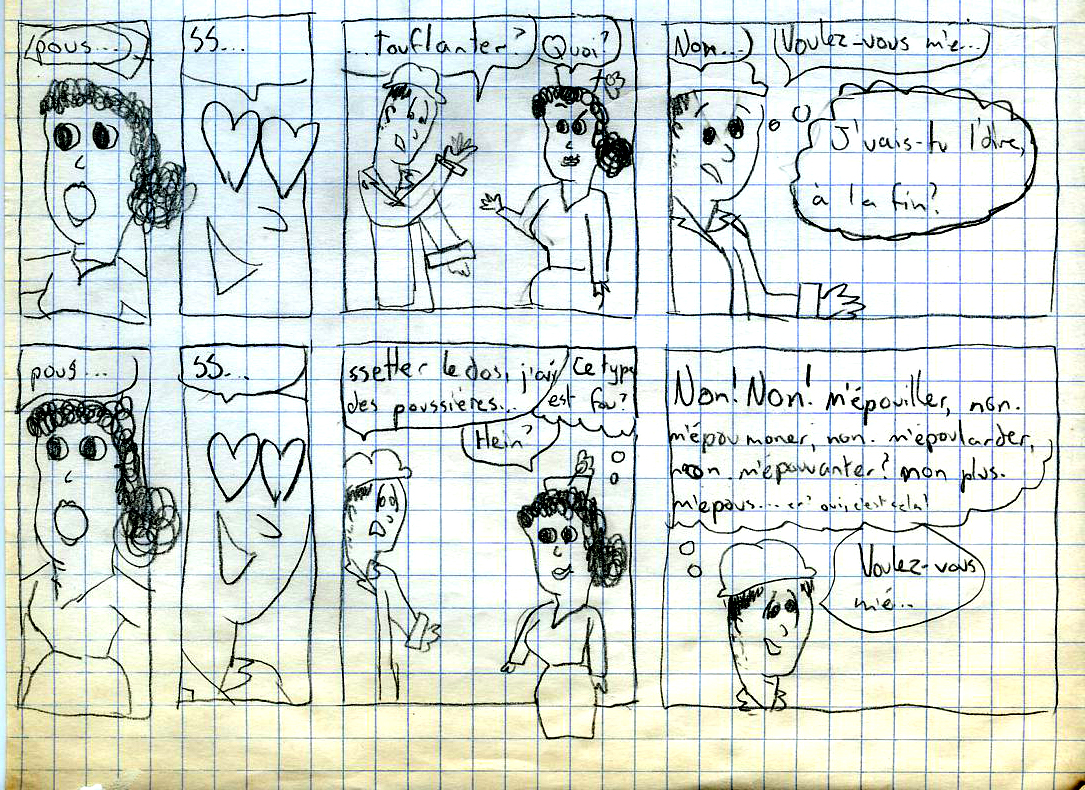 pous...
SS...
...touflanter?
Quoi?
Non...
Voulez-vous m'é...
J'vais-tu l'dire,
à la fin?
pous...
SS...
ssetter le dos, j'ai
des poussières...
Ce type
est fou?
Hein?
Non! Non! m'épouiller, non.
m'époumoner, non. m'époularder,
non. m'épouvanter? non plus.
m'épous... oui, c'est cela!
Voulez-vous
m'é...